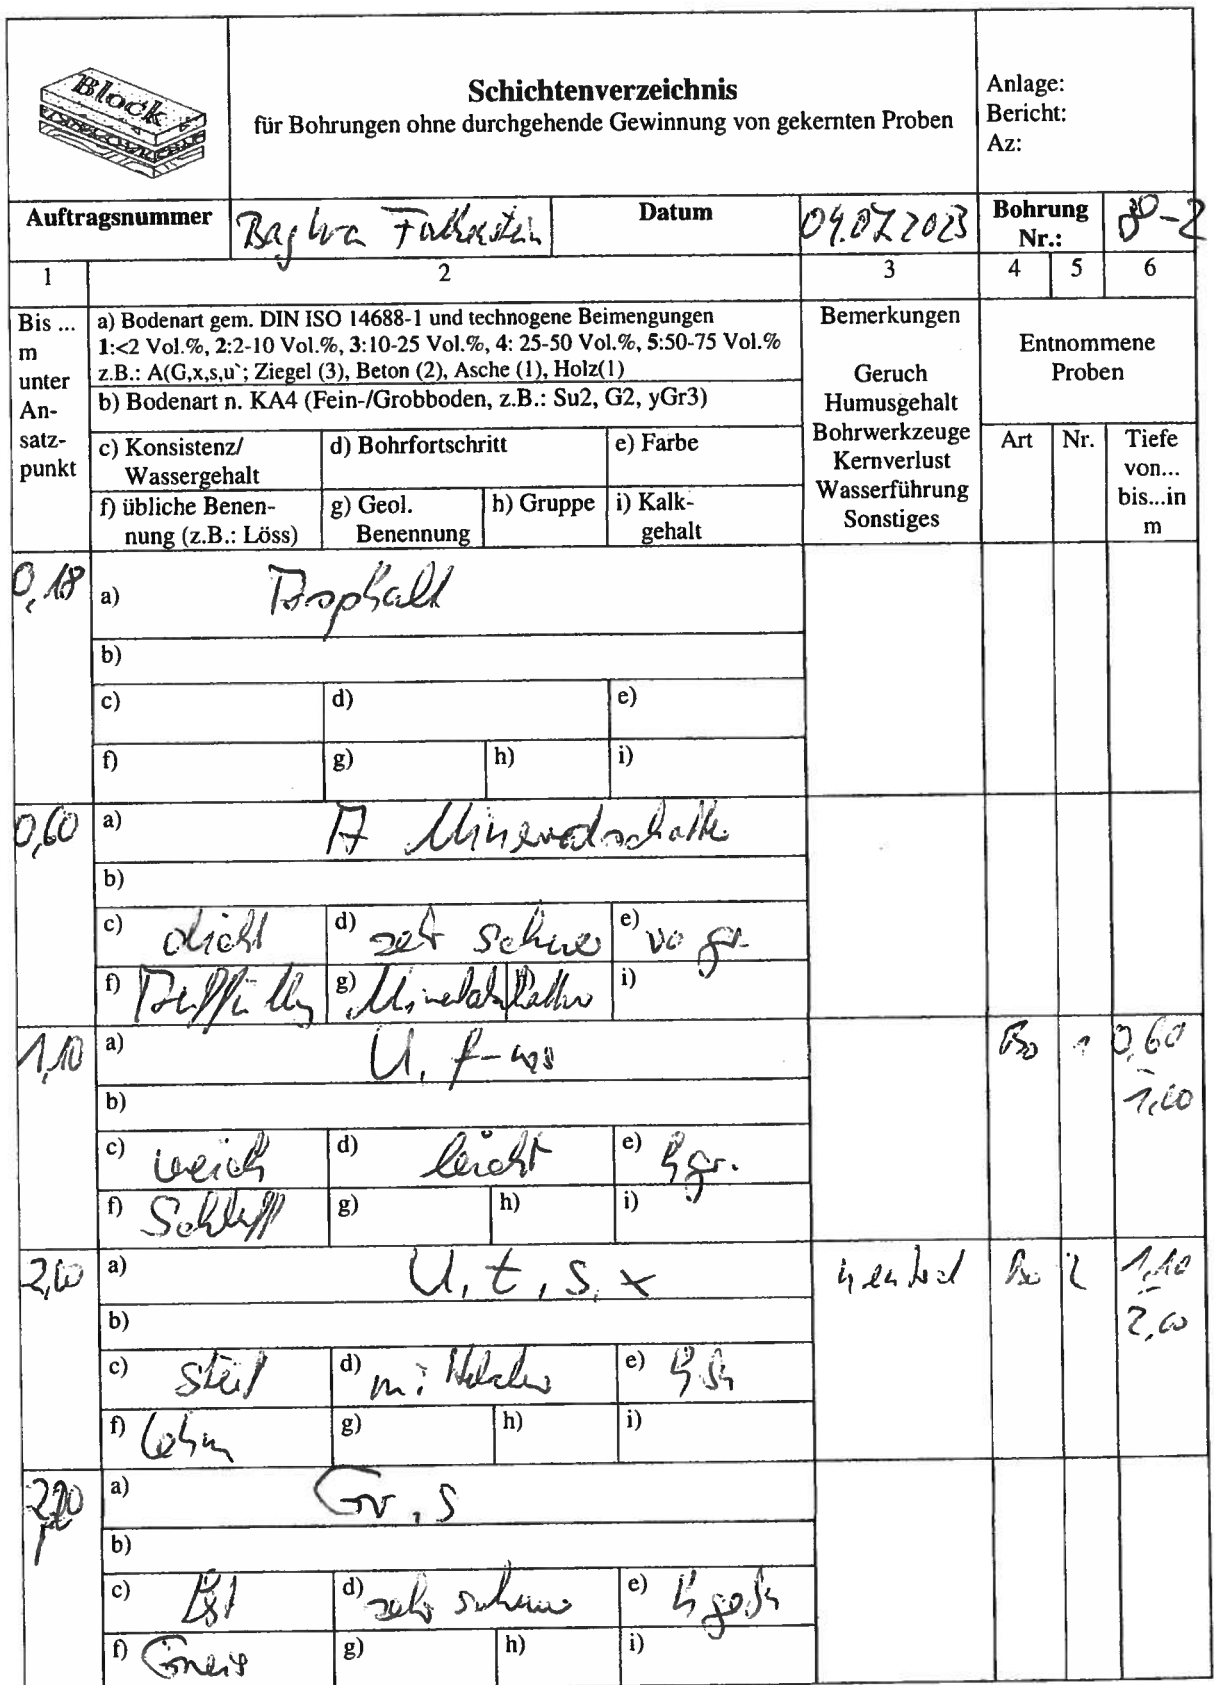 Block
Schichtenverzeichnis
für Bohrungen ohne durchgehende Gewinnung von gekernten Proben
Anlage:
Bericht:
Az:
Auftragsnummer
Datum
04.07.2023
Bohrung
Nr.:
1
2
3
4
5
6
Bis ...
m
unter
An-
satz-
punkt
a) Bodenart gem. DIN ISO 14688-1 und technogene Beimengungen
1:<2 Vol.%, 2:2-10 Vol.%, 3:10-25 Vol.%, 4: 25-50 Vol.%, 5:50-75 Vol.%
z.B.: A(G,x,s,u`; Ziegel (3), Beton (2), Asche (1), Holz(1)
b) Bodenart n. KA4 (Fein-/Grobboden, z.B.: Su2, G2, yGr3)
c) Konsistenz/
Wassergehalt
d) Bohrfortschritt
e) Farbe
f) übliche Benen-
nung (z.B.: Löss)
g) Geol.
Benennung
h) Gruppe
i) Kalk-
gehalt
Bemerkungen
Geruch
Humusgehalt
Bohrwerkzeuge
Kernverlust
Wasserführung
Sonstiges
Entnommene
Proben
Art
Nr.
Tiefe
von...
bis...in
m
0,18
a) Asphalt
b)
c)
d)
e)
f)
g)
h)
i)
0,60
a) A
b)
c) dicht
d) sehr schwer
e)
f) Auffüllung
g)
i)
1,10
a) U,
Bo 1 0,60
-
b)
c) weich
d) leicht
e)
f) Schluff
g)
h)
i)
2,00
a) U, t, s, x
Bo 2 1,10
-
2,00
b)
c) steif
d)
e)
f) Lehm
g)
h)
i)
a) Gr, s
b)
c) fest
d) sehr schwer
e)
f) Gneis
g)
h)
i)